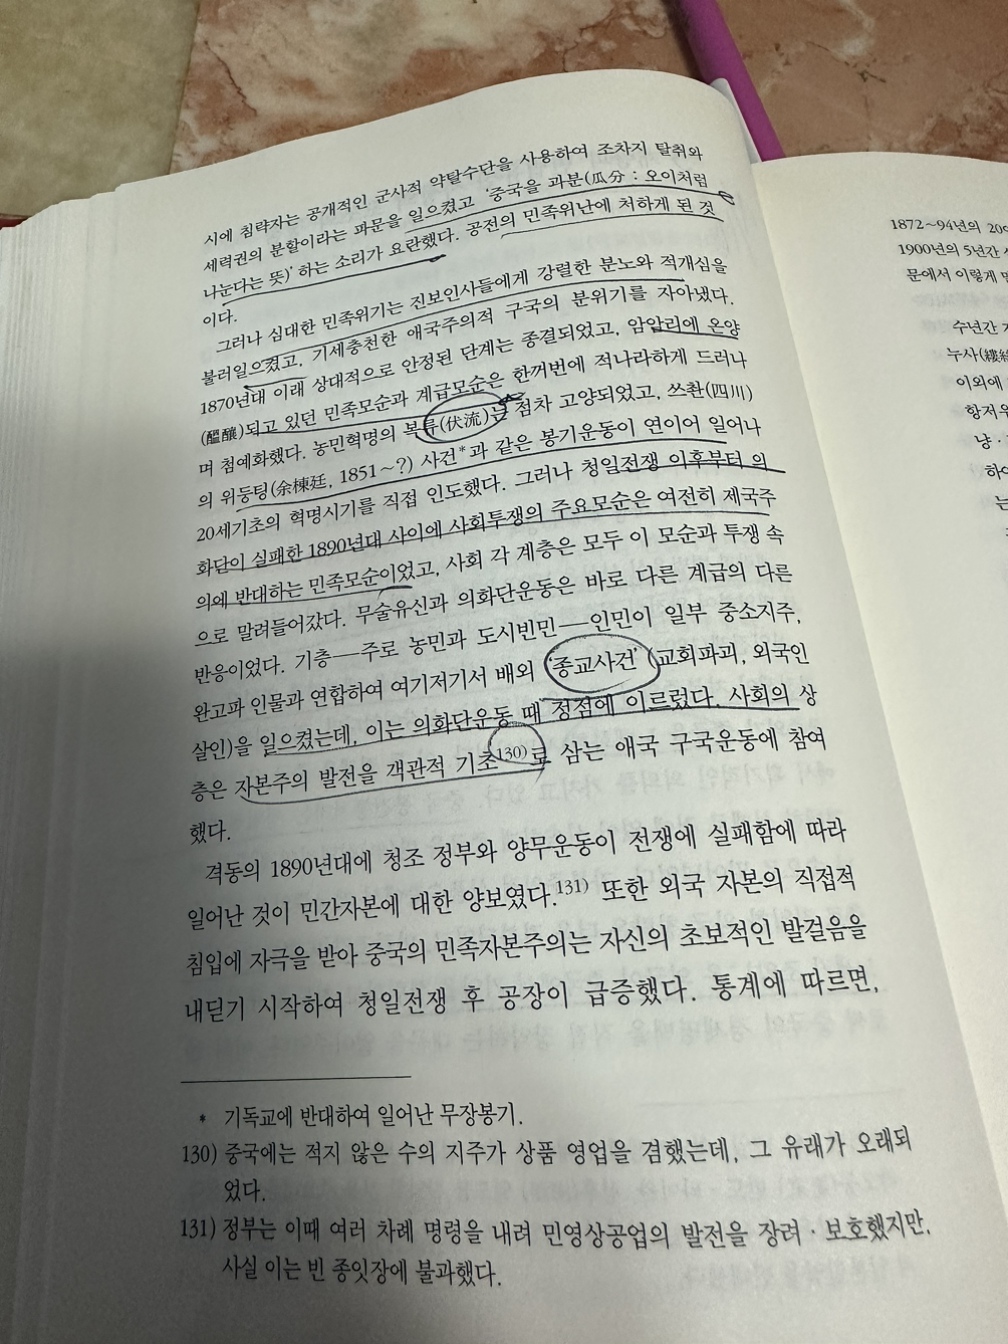 시에 침략자는 공개적인 군사적 약탈수단을 사용하여 조차지 탈취와
세력권의 분할이라는 파문을 일으켰고 '중국을 과분(瓜分 : 오이처럼
나눈다는 뜻)' 하는 소리가 요란했다. 공전의 민족위난에 처하게 된 것
이다.
그러나 심대한 민족위기는 진보인사들에게 강렬한 분노와 적개심을
불러일으켰고, 기세충천한 애국주의적 구국의 분위기를 자아냈다.
1870년대 이래 상대적으로 안정된 단계는 종결되었고, 암암리에 온양
(醞釀)되고 있던 민족모순과 계급모순은 한꺼번에 적나라하게 드러나
며 첨예화했다. 농민혁명의 복류(伏流)는 점차 고양되었고, 쓰촨(四川)
의 위둥팅(余棟廷, 1851~?) 사건*과 같은 봉기운동이 연이어 일어나
20세기초의 혁명시기를 직접 인도했다. 그러나 청일전쟁 이후부터 의
화단이 실패한 1890년대 사이에 사회투쟁의 주요모순은 여전히 제국주
의에 반대하는 민족모순이었고, 사회 각 계층은 모두 이 모순과 투쟁 속
으로 말려들어갔다. 무술유신과 의화단운동은 바로 다른 계급의 다른
반응이었다. 기층──주로 농민과 도시빈민──인민이 일부 중소지주,
완고파 인물과 연합하여 여기저기서 배외 '종교사건' (교회파괴, 외국인
살인)을 일으켰는데, 이는 의화단운동 때 정점에 이르렀다. 사회의 상
층은 자본주의 발전을 객관적 기초130)로 삼는 애국 구국운동에 참여
했다.
격동의 1890년대에 청조 정부와 양무운동이 전쟁에 실패함에 따라
일어난 것이 민간자본에 대한 양보였다.131) 또한 외국 자본의 직접적
침입에 자극을 받아 중국의 민족자본주의는 자신의 초보적인 발걸음을
내딛기 시작하여 청일전쟁 후 공장이 급증했다. 통계에 따르면,
* 기독교에 반대하여 일어난 무장봉기.
130) 중국에는 적지 않은 수의 지주가 상품 영업을 겸했는데, 그 유래가 오래되
었다.
131) 정부는 이때 여러 차례 명령을 내려 민영상공업의 발전을 장려·보호했지만,
사실 이는 빈 종잇장에 불과했다.
1872~94년의
1900년의 5년간
문에서 이렇게
수년간
이외에